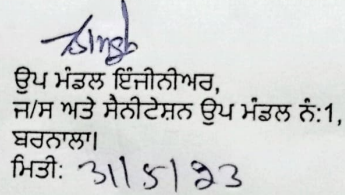 ਉਪ ਮੰਡਲ ਇੰਜੀਨੀਅਰ,
ਜ/ਸ ਅਤੇ ਸੈਨੀਟੇਸ਼ਨ ਉਪ ਮੰਡਲ ਨੰ:1,
ਬਰਨਾਲਾ।
ਮਿਤੀ: 31/5/23